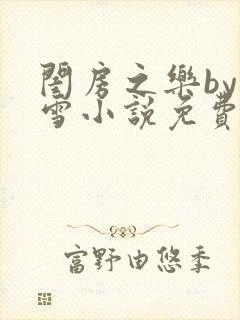 閨房之樂by
雪小說免費
富野由悠季